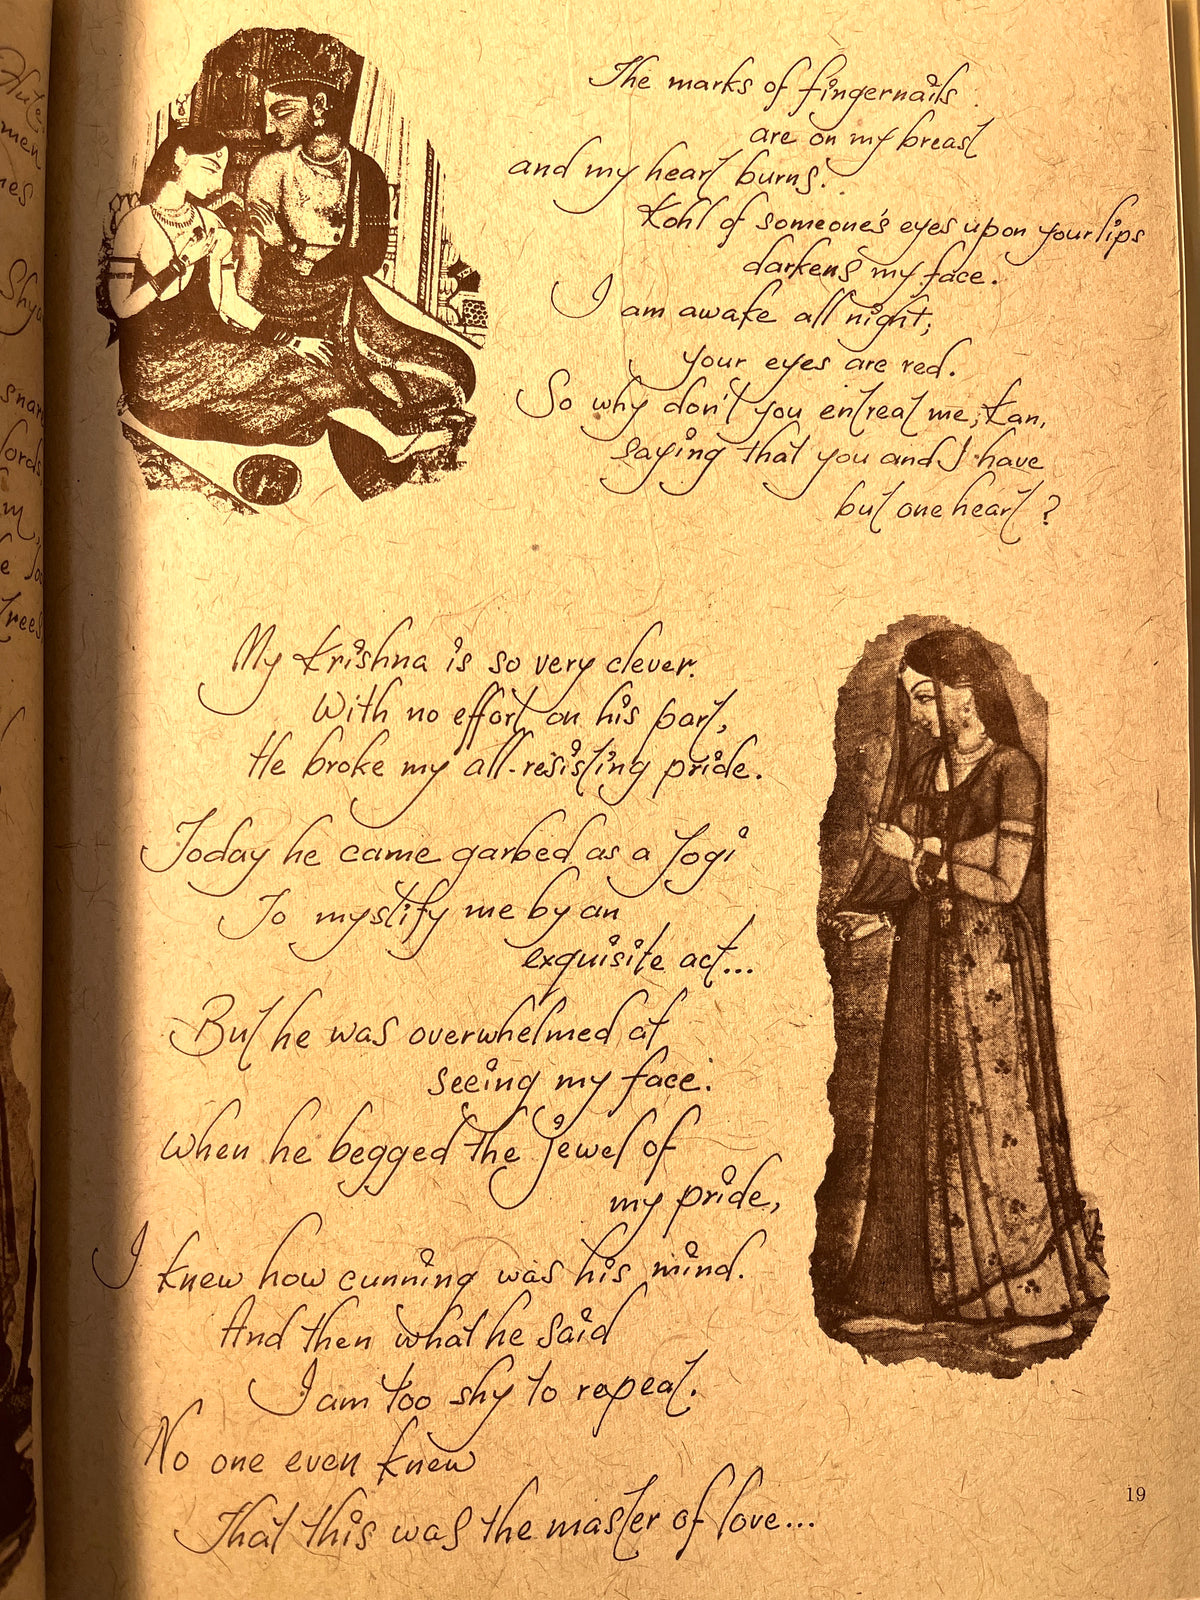 Flute
men
mes
Shya
snar
lords
m,
trees
The marks of fingernails
are on my breast
and my heart burns.
Kohl of someone's eyes upon your lips
darkens my face.
I am awake all night;
your eyes are red.
So why don't you entreat me, Kan,
saying that you and I have
but one heart?
My Krishna is so very clever.
With no effort on his part,
He broke my all-resisting pride.
Today he came garbed as a Yogi
To mystify me by an
exquisite act...
But he was overwhelmed at
seeing my face.
When he begged the jewel of
my pride,
I knew how cunning was his mind.
And then what he said
I am too shy to repeat.
No one even knew
That this was the master of love...
19